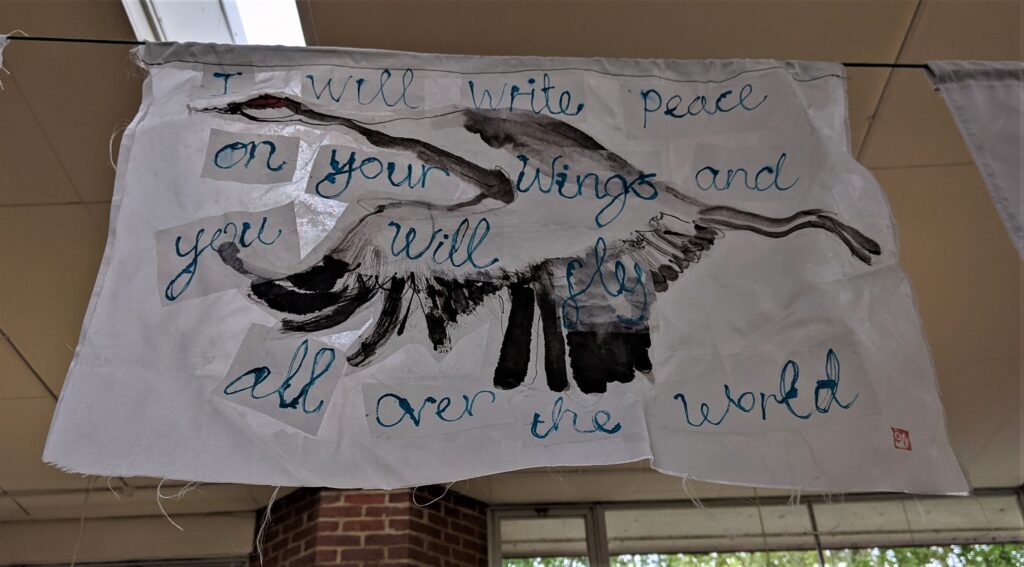 I will write peace
on your wings and
you will fly
all over the world